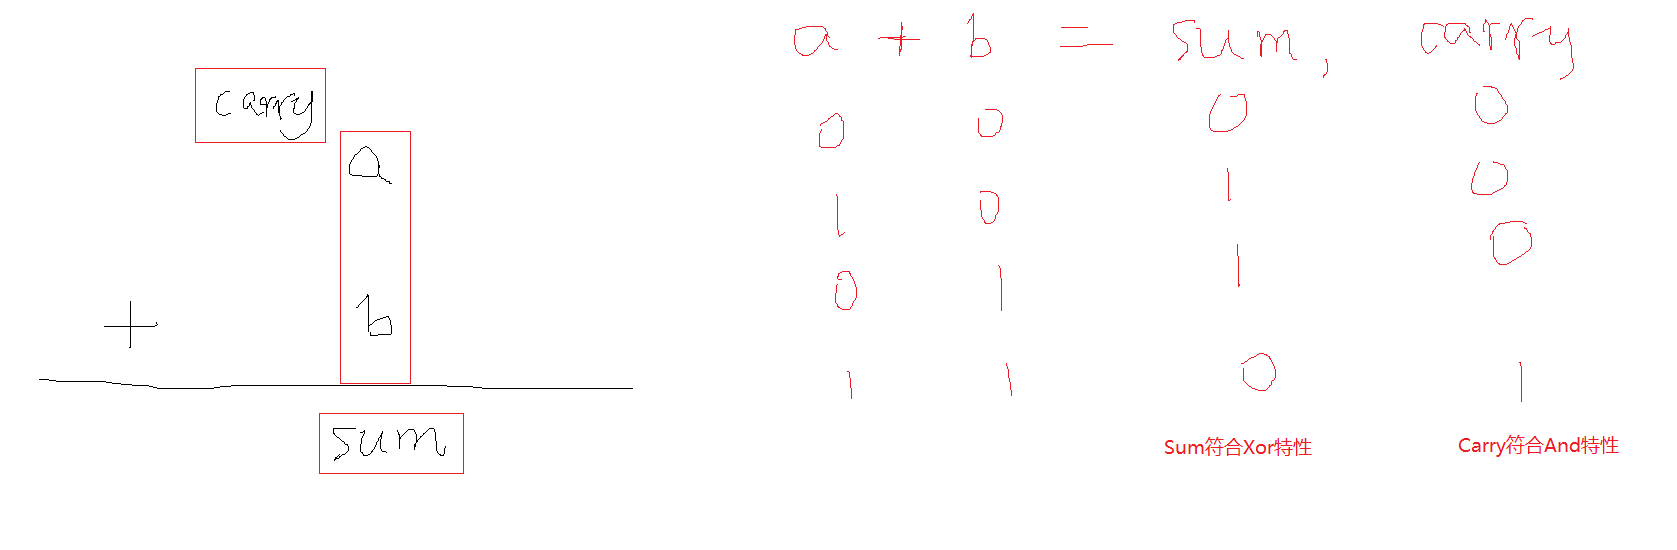 carry
a
+ b
sum
a + b = sum, carry
0 0 0 0
1 0 1 0
0 1 1 0
1 1 0 1
Sum符合Xor特性 Carry符合And特性